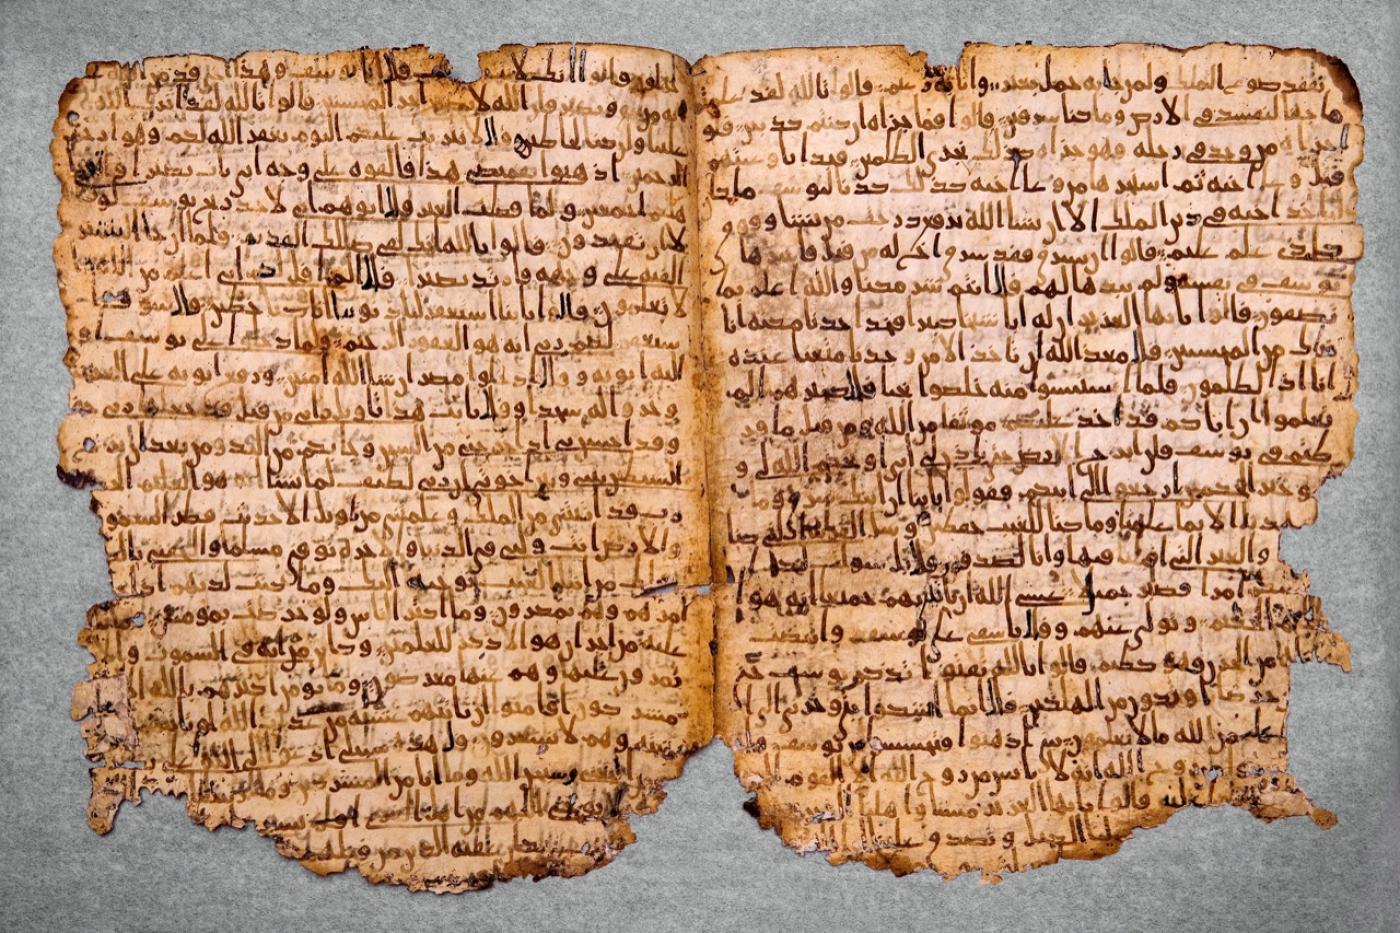 نفقد صوع الملك ولمن جا به حمل بعير وانا به زعيم قالوا تالله لقد علمتم
ما جينا لنفسد في الارض وما كنا سرقين قالوا فما جزاه ان كنتم كذبين قالو
جزاه من وجد في رحله فهو جزاه كذلك نجزي الظلمين فبدا باوعيتهم
قبل وعا اخيه ثم استخرجها من وعا اخيه كذلك كدنا ليوسف ما كان
لياخذ اخيه في دين الملك الا ان يشا الله نرفع درجت من نشا وفوق
كل ذي علم عليم قالوا ان يسرق فقد سرق اخ له من قبل فاسرها
يوسف في نفسه ولم يبدها لهم قال انتم شر مكنا والله اعلم بما
تصفون قالوا يايها العزيز ان له ابا شيخا كبيرا فخذ احدنا مكنه انا
نريك من المحسنين قال معذ الله ان ناخذ الا من وجدنا متعنا عنده
انا اذا لظلمون فلما استيسوا منه خلصوا نجيا قال كبيرهم الم
تعلموا ان اباكم قد اخذ عليكم موثقا من الله ومن قبل ما فر
طتم في يوسف فلن ابرح الارض حتى ياذن لي ابي او يحكم الله لي و
هو خير الحكمين ارجعوا الى ابيكم فقولوا يابانا ان ابنك سرق وما
شهدنا الا بما علمنا وما كنا للغيب حفظين وسل القرية التي كنا
والعير التي اقبلنا فيها وانا لصدقون قال بل سولت لكم ا
نفسكم امرا فصبر جميل عسى الله ان ياتيني بهم جميعا انه هو ا
الحكيم وتولى عنهم وقال ياسفى على يوسف وابيضت
من الحزن فهو كظيم قالوا تالله تفتوا تذكر يوسف حتى
حرضا او تكون من الهلكين قال انما اشكوا بثي وحزني الى ا
من الله ما لا تعلمون يبني اذهبوا فتحسسوا من يوسف و
من روح الله انه لا يايس من روح الله الا القوم ا
عليه قالوا يايها العزيز مسنا واهلنا الضر
لنا الكيل وتصدق علينا
قالوا انك لانت يوسف قال انا يوسف وهذا اخي قد من الله
انه من يتق ويصبر فان الله لا يضيع اجر المحسنين قالوا تالله لقد اثرك الله
علينا وان كنا لخطين قال لا تثريب عليكم اليوم يغفر الله لكم وهو ارحم
الرحمين اذهبوا بقميصي هذا فالقوه على وجه ابي يات بصيرا
باهلكم اجمعين ولما فصلت العير قال ابوهم اني لاجد ريح يوسف لو
لا ان تفندون قالوا تالله انك لفي ضللك القديم فلما ان جا البشير
القيه على وجهه فارتد بصيرا قال الم اقل لكم اني اعلم من الله ما
لا تعلمون قالوا يابانا استغفر لنا ذنوبنا انا كنا خطين قال سوف
استغفر لكم ربي انه هو الغفور الرحيم فلما دخلوا على يوسف او
اليه ابويه وقال ادخلوا مصر ان شا الله امنين ورفع ابويه على العرش
وخروا له سجدا وقال يابت هذا تاويل ريي من قبل قد جعلها ربي حقا
وقد احسن بي اذ اخرجني من السجن وجا بكم من البدو من بعد ان نزغ
الشيطن بيني وبين اخوتي ان ربي لطيف لما يشا انه هو العليم
رب قد اتيتني من الملك وعلمتني من تاويل الاحديث فطر السموت
والارض انت وليي في الدنيا والاخرة توفني مسلما والحقني بالصلحين
ذلك من انبا الغيب نوحيه اليك وما كنت لديهم اذ
امرهم وهم يمكرون وما اكثر الناس ولو حرصت بمومنين
عليه من اجر ان هو الا ذكر للعلمين وكاين من اية في السموت والا
يمرون عليها وهم عنها معرضون وما يومن اكثرهم بالله الا
وهم مشركون افامنوا ان تاتيهم غشية من عذاب الله او تاتيهم
وهم لا يشعرون قل هذه سبيلي ادعوا الى الله على
اتبعني وسبحن الله وما انا من المشركين وما
نوحي اليهم من اهل القرى افلم يسيروا
كيف كان عقبة الذين من قبلهم